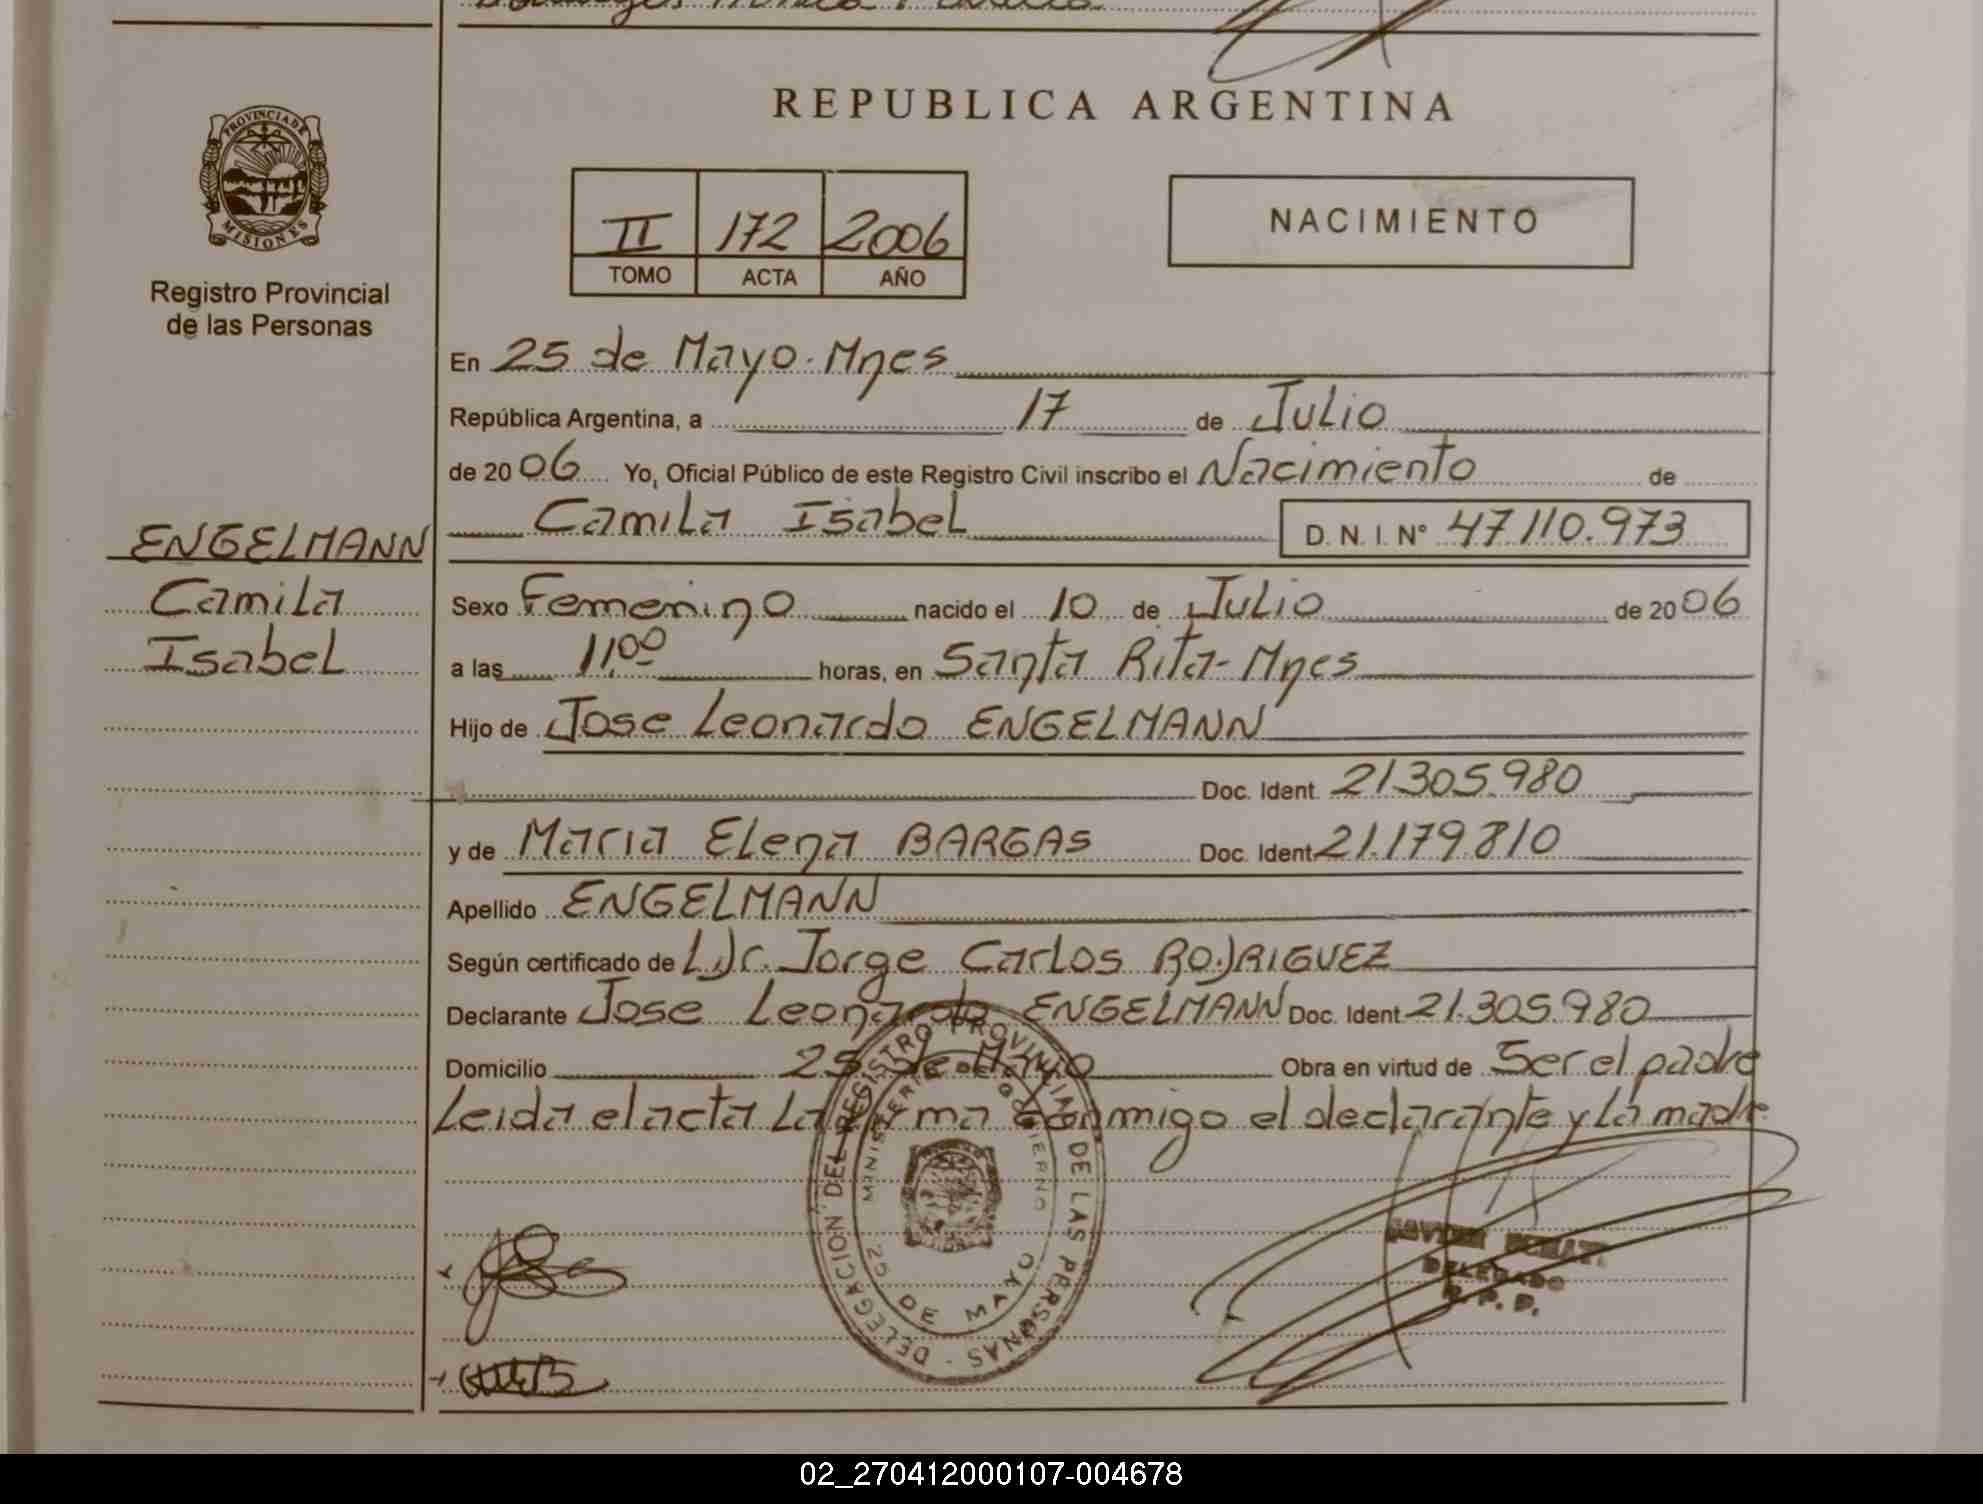 REPUBLICA ARGENTINA
PROVINCIA DE
MISIONES
Registro Provincial
de las Personas
II 172 2006
TOMO ACTA AÑO
NACIMIENTO
En 25 de Mayo. Mnes
República Argentina, a 17 de Julio
de 2006 Yo, Oficial Público de este Registro Civil inscribo el Nacimiento de
Camila Isabel D. N. I. N° 47.110.973
ENGELMANN
Camila
Isabel
Sexo Femenino nacido el 10 de Julio de 2006
a las 11,00 horas, en Santa Rita-Mnes
Hijo de Jose Leonardo ENGELMANN
Doc. Ident. 21.305.980
y de Maria Elena BARGAS Doc. Ident. 21.179.810
Apellido ENGELMANN
Según certificado de L Dr. Jorge Carlos RODRIGUEZ
Declarante Jose Leonardo ENGELMANN Doc. Ident. 21.305.980
Domicilio 25 de Mayo Obra en virtud de Ser el padre
Leida el acta La firma conmigo el declarante y La madre
DELEGACION DEL REGISTRO PROVINCIAL DE LAS PERSONAS
MINISTERIO DE GOBIERNO
25 DE MAYO
DELEGADO
R. P. P.
02_270412000107-004678